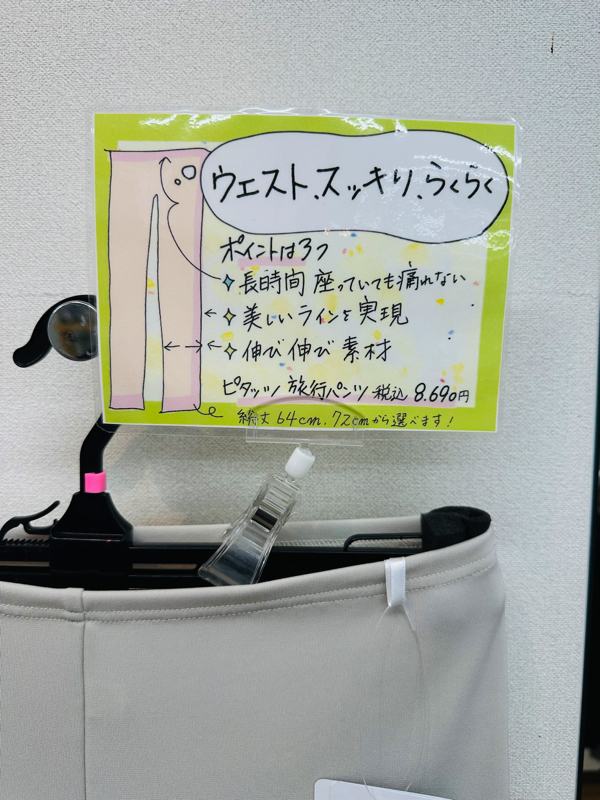 ウエスト、スッキリ、らくらく
ポイントは3つ
長時間 座っていても痛れない
美しいラインを実現
伸び伸び素材
ピタッツ 旅行パンツ 税込 8.690円
総丈64cm.72cmから選べます!